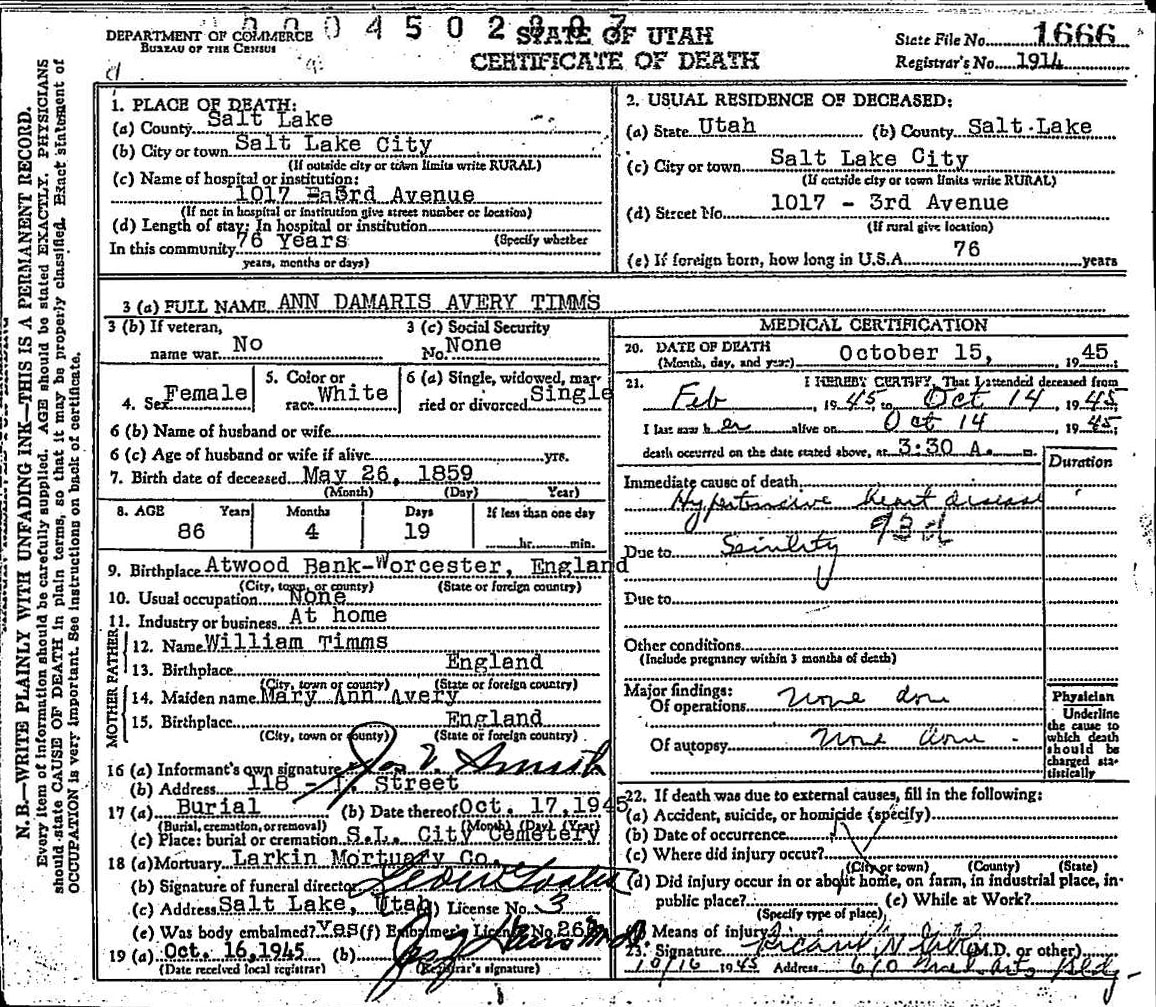 0004502807
DEPARTMENT OF COMMERCE
BUREAU OF THE CENSUS
STATE OF UTAH
CERTIFICATE OF DEATH
State File No. 1666
Registrar's No. 1914
N. B.—WRITE PLAINLY WITH UNFADING INK—THIS IS A PERMANENT RECORD.
Every item of information should be carefully supplied. AGE should be stated EXACTLY. PHYSICIANS
should state CAUSE OF DEATH in plain terms, so that it may be properly classified. Exact statement of
OCCUPATION is very important. See instructions on back of certificate.
1. PLACE OF DEATH:
(a) County Salt Lake
(b) City or town Salt Lake City
(If outside city or town limits write RURAL)
(c) Name of hospital or institution:
1017 - 3rd Avenue
(If not in hospital or institution give street number or location)
(d) Length of stay: In hospital or institution
(Specify whether
In this community 76 Years
years, months or days)
2. USUAL RESIDENCE OF DECEASED:
(a) State Utah (b) County Salt Lake
(c) City or town Salt Lake City
(If outside city or town limits write RURAL)
(d) Street No. 1017 - 3rd Avenue
(If rural give location)
(e) If foreign born, how long in U.S.A. 76 years
3 (a) FULL NAME ANN DAMARIS AVERY TIMMS
3 (b) If veteran, name war No
3 (c) Social Security No. None
4. Sex Female
5. Color or race White
6 (a) Single, widowed, married or divorced Single
6 (b) Name of husband or wife
6 (c) Age of husband or wife if alive yrs.
7. Birth date of deceased May 26, 1859
(Month) (Day) Year)
8. AGE Years Months Days If less than one day
86 4 19 hr. min.
9. Birthplace Atwood Bank-Worcester, England
(City, town, or county) (State or foreign country)
10. Usual occupation None
11. Industry or business At home
FATHER
12. Name William Timms
13. Birthplace England
(City, town or county) (State or foreign country)
MOTHER
14. Maiden name Mary Ann Avery
15. Birthplace England
(City, town or county) (State or foreign country)
16 (a) Informant's own signature Smith
(b) Address 118 - Street
17 (a) Burial (b) Date thereof Oct. 17, 1945
(Burial, cremation, or removal) (Month) (Day) (Year)
(c) Place: burial or cremation S.L. City Cemetery
18 (a) Mortuary Larkin Mortuary Co.
(b) Signature of funeral director
(c) Address Salt Lake, Utah (d) License No. 3
(e) Was body embalmed? Yes (f) Embalmer's License No.
19 (a) Oct. 16, 1945 (b)
(Date received local registrar) (Registrar's signature)
MEDICAL CERTIFICATION
20. DATE OF DEATH
(Month, day, and year) October 15, 1945
21. I HEREBY CERTIFY, That I attended deceased from
Feb, 1945, to Oct 14, 1945
I last saw her alive on Oct 14, 1945;
death occurred on the date stated above, at 3:30 A. m.
Duration
Immediate cause of death
Hypertensive heart disease
93d
Due to Seinlity
Due to
Other conditions
(Include pregnancy within 3 months of death)
Major findings:
Of operations None done
Of autopsy None done
Physician
Underline
the cause to
which death
should be
charged sta-
tistically
22. If death was due to external causes, fill in the following:
(a) Accident, suicide, or homicide (specify)
(b) Date of occurrence
(c) Where did injury occur?
(City or town) (County) (State)
(d) Did injury occur in or about home, on farm, in industrial place, in
public place? (e) While at Work?
(Specify type of place)
Means of injury
23. Signature (M.D. or other)
10/16 1945 Address 610 Bldg